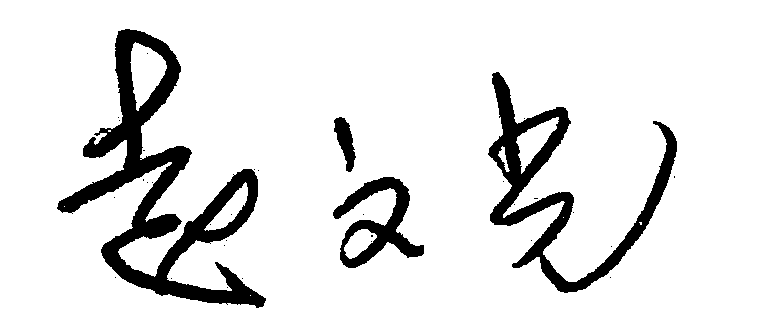 赵文光